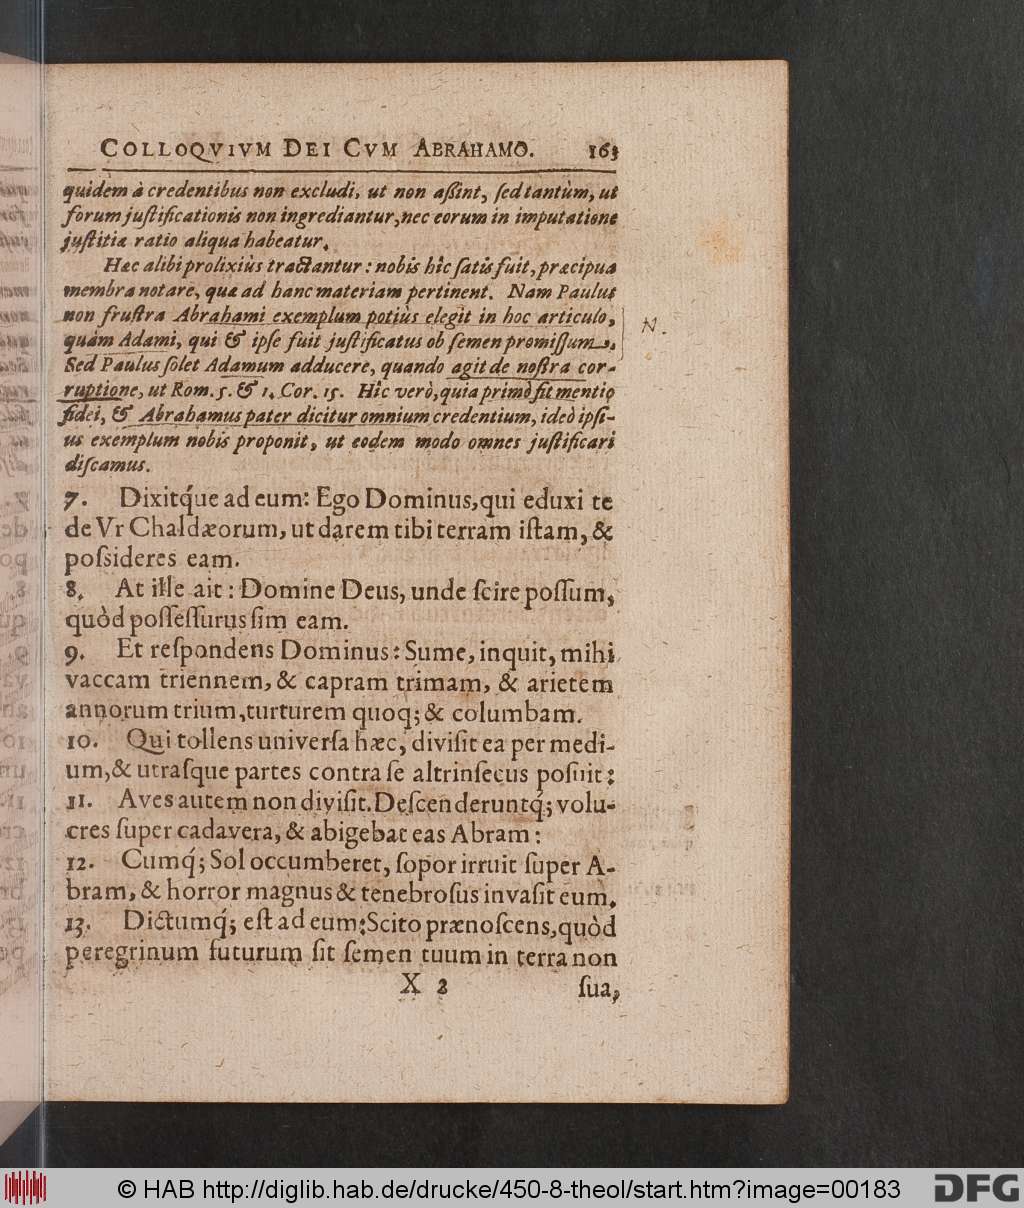 COLLOQVIVM DEI CVM ABRAHAMO. 163
quidem à credentibus non excludi, ut non aſſint, ſed tantùm, ut
forum juſtificationis non ingrediantur, nec eorum in imputatione
juſtitiæ ratio aliqua habeatur.
Hæc alibi prolixiùs tractantur: nobis hîc ſatis fuit, præcipua
membra notare, quæ ad hanc materiam pertinent. Nam Paulus
non fruſtra Abrahami exemplum potiùs elegit in hoc articulo,
quàm Adami, qui & ipſe fuit juſtificatus ob ſemen promiſſum.
Sed Paulus ſolet Adamum adducere, quando agit de noſtra cor-
ruptione, ut Rom. 5. & 1. Cor. 15. Hîc verò, quia primò fit mentio
fidei, & Abrahamus pater dicitur omnium credentium, ideò ipſi-
us exemplum nobis proponit, ut eodem modo omnes juſtificari
diſcamus.
N.
7. Dixitq́ue ad eum: Ego Dominus, qui eduxi te
de Vr Chaldæorum, ut darem tibi terram iſtam, &
poſsideres eam.
8. At ille ait: Domine Deus, unde ſcire poſſum,
quòd poſſeſſurus ſim eam.
9. Et reſpondens Dominus: Sume, inquit, mihi
vaccam triennem, & capram trimam, & arietem
annorum trium, turturem quoq; & columbam.
10. Qui tollens univerſa hæc, diviſit ea per medi-
um, & utraſque partes contra ſe altrinſecus poſuit:
11. Aves autem non diviſit. Deſcenderuntq́; volu-
cres ſuper cadavera, & abigebat eas Abram:
12. Cumq́; Sol occumberet, ſopor irruit ſuper A-
bram, & horror magnus & tenebroſus invaſit eum.
13. Dictumq́; eſt ad eum: Scito prænoſcens, quòd
peregrinum futurum ſit ſemen tuum in terra non
X 2 ſua,
© HAB http://diglib.hab.de/drucke/450-8-theol/start.htm?image=00183
DFG